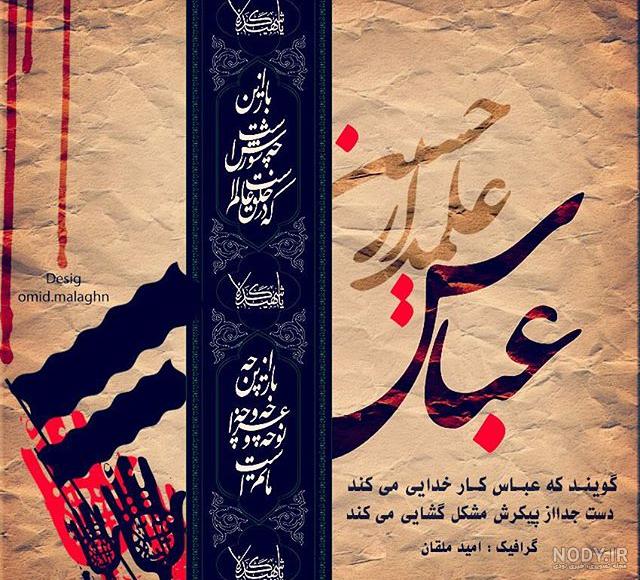 علمدار حسین
عباس
گویند که عباس کار خدایی می کند
دست جدااز پیکرش مشکل گشایی می کند
گرافیک : امید ملقان
یا شهید کربلا
باز این
چه شورش است
که در خلق عالم است
یا شهید کربلا
باز این چه
نوحه و چه عزا و چه
ماتم است
یا شهید کربلا
Desig
omid.malaghn
NODY.IR